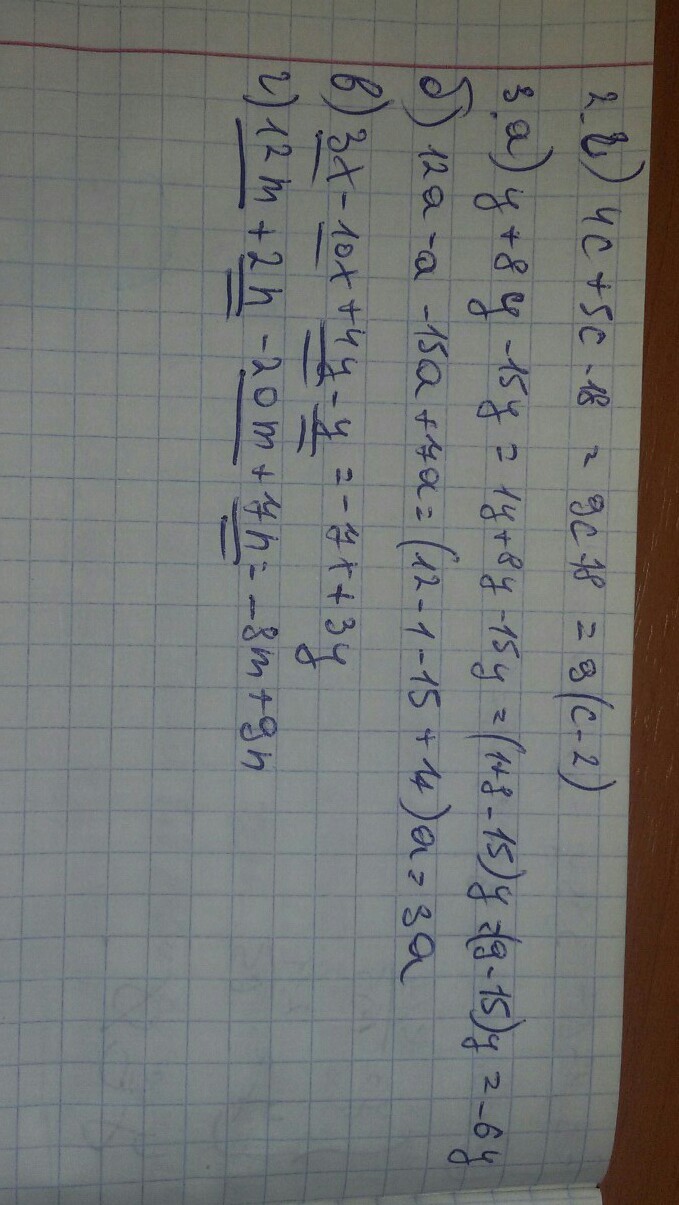 2. г) 4c + 5c - 18 = 9c - 18 = 9(c - 2)
3. а) y + 8y - 15y = 1y + 8y - 15y = (1+8 - 15)y = (9 - 15)y = -6y
б) 12a - a - 15a + 7a = (12 - 1 - 15 + 7)a = 3a
в) 3x - 10x + 4y - y = -7x + 3y
г) 12m + 2n - 20m + 7n = -8m + 9n